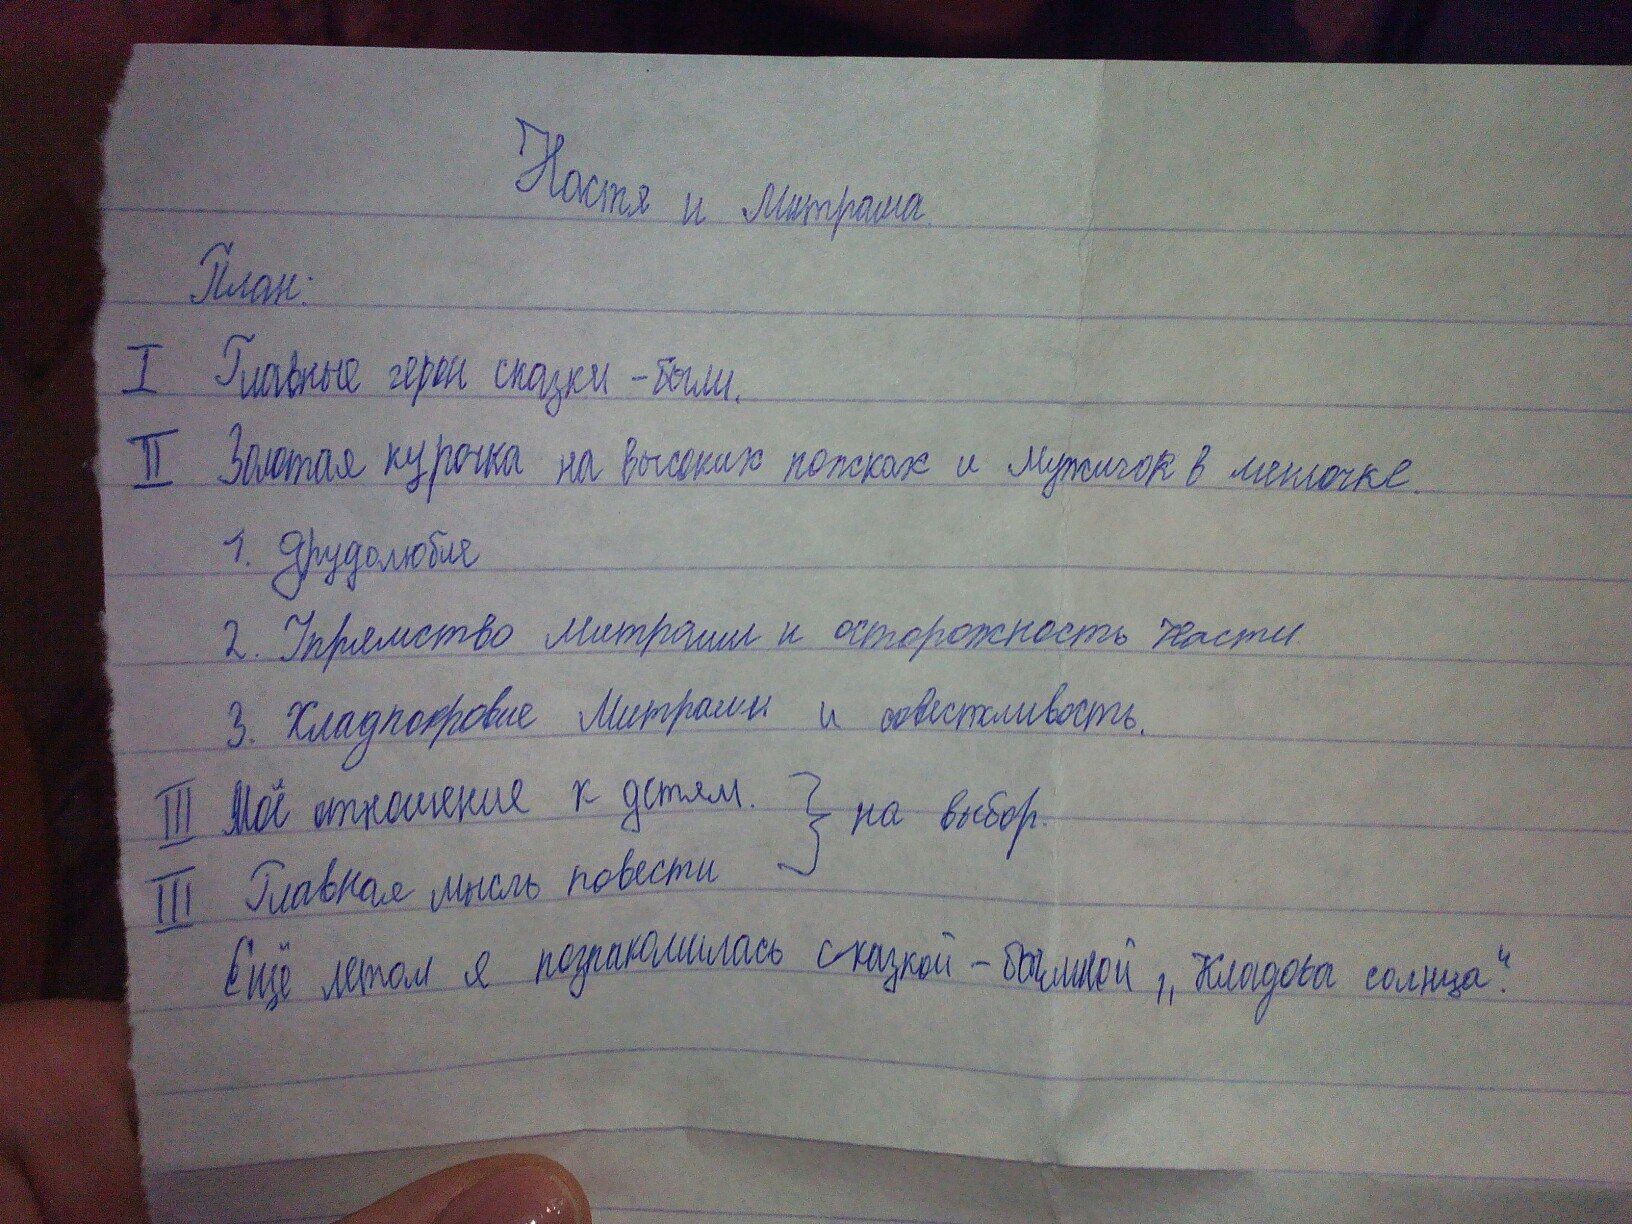 Настя и Митраша.
План:
I Главные герои сказки-были.
II Золотая курочка на высоких ножках и Мужичок в мешочке.
1. Трудолюбие
2. Упрямство Митраши и осторожность Насти
3. Хладнокровие Митраши и совестливость.
III Моё отношение к детям. } на выбор.
III Главная мысль повести
Ещё летом я познакомилась сказкой-былиной „Кладовы солнца“.